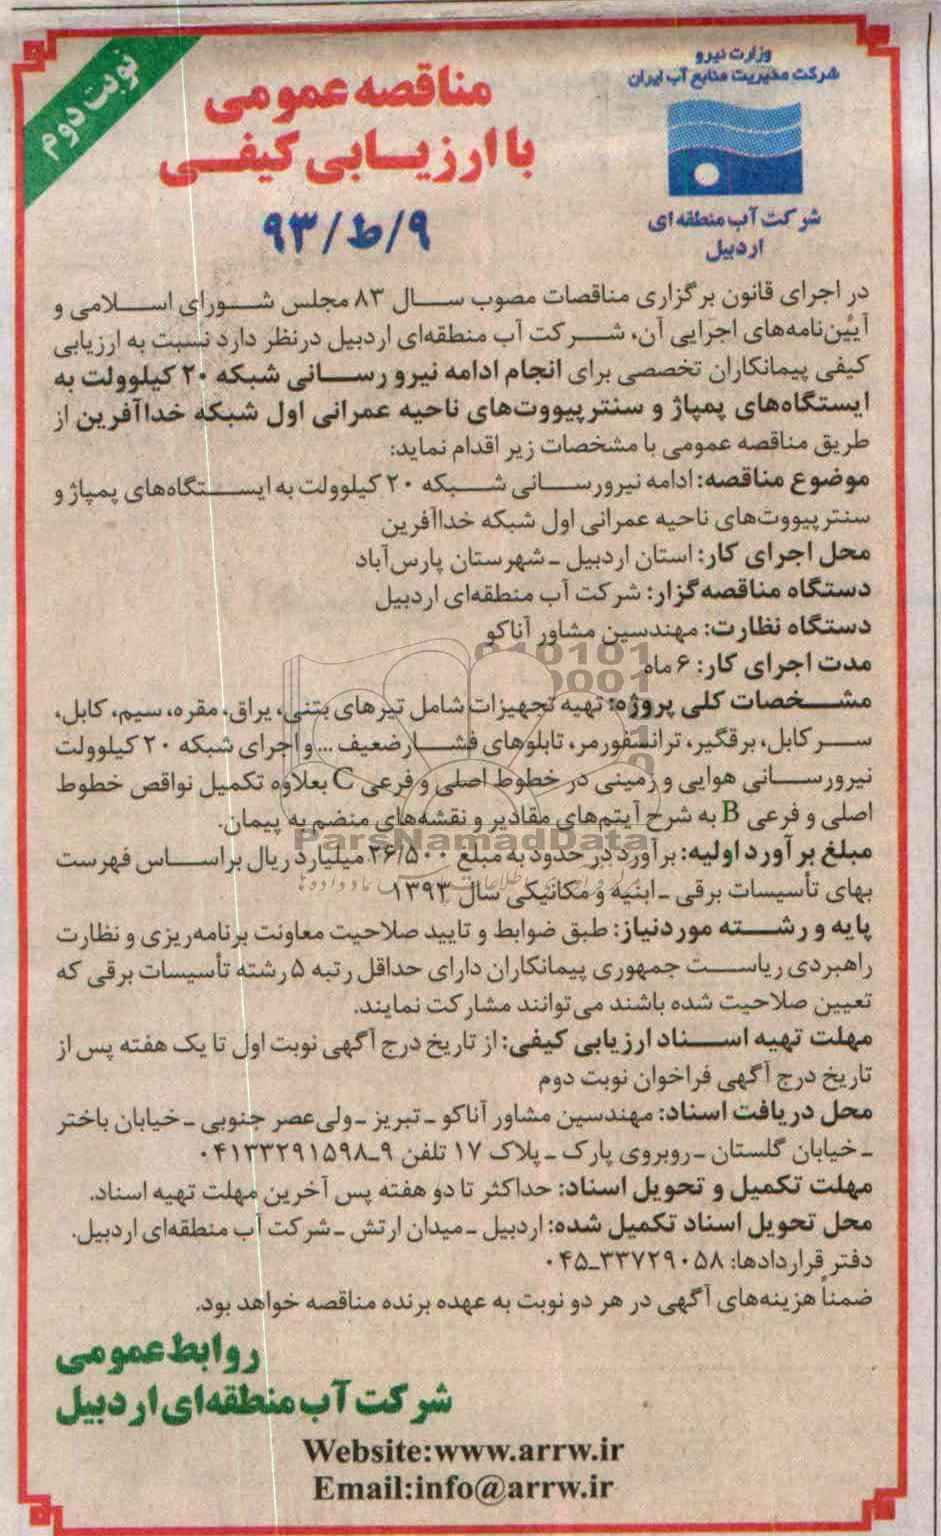 نوبت دوم
وزارت نیرو
شرکت مدیریت منابع آب ایران
شرکت آب منطقه ای
اردبیل
مناقصه عمومی
با ارزیابی کیفی
۹/ط/۹۳
در اجرای قانون برگزاری مناقصات مصوب سال ۸۳ مجلس شورای اسلامی و
آیین‌نامه‌های اجرایی آن، شرکت آب منطقه‌ای اردبیل درنظر دارد نسبت به ارزیابی
کیفی پیمانکاران تخصصی برای انجام ادامه نیرو رسانی شبکه ۲۰ کیلوولت به
ایستگاه‌های پمپاژ و سنترپیووت‌های ناحیه عمرانی اول شبکه خداآفرین از
طریق مناقصه عمومی با مشخصات زیر اقدام نماید:
موضوع مناقصه: ادامه نیرورسانی شبکه ۲۰ کیلوولت به ایستگاه‌های پمپاژ و
سنترپیووت‌های ناحیه عمرانی اول شبکه خداآفرین
محل اجرای کار: استان اردبیل ـ شهرستان پارس‌آباد
دستگاه مناقصه‌گزار: شرکت آب منطقه‌ای اردبیل
دستگاه نظارت: مهندسین مشاور آناکو
مدت اجرای کار: ۶ ماه
مشخصات کلی پروژه: تهیه تجهیزات شامل تیرهای بتنی، یراق، مقره، سیم، کابل،
سرکابل، برقگیر، ترانسفورمر، تابلوهای فشارضعیف ... و اجرای شبکه ۲۰ کیلوولت
نیرورسانی هوایی و زمینی در خطوط اصلی و فرعی C بعلاوه تکمیل نواقص خطوط
اصلی و فرعی B به شرح آیتم‌های مقادیر و نقشه‌های منضم به پیمان.
مبلغ برآورد اولیه: برآورد در حدود به مبلغ ۲۶/۵۰۰ میلیارد ریال براساس فهرست
بهای تأسیسات برقی ـ ابنیه و مکانیکی سال ۱۳۹۳
پایه و رشته موردنیاز: طبق ضوابط و تایید صلاحیت معاونت برنامه‌ریزی و نظارت
راهبردی ریاست جمهوری پیمانکاران دارای حداقل رتبه ۵ رشته تأسیسات برقی که
تعیین صلاحیت شده باشند می‌توانند مشارکت نمایند.
مهلت تهیه اسناد ارزیابی کیفی: از تاریخ درج آگهی نوبت اول تا یک هفته پس از
تاریخ درج آگهی فراخوان نوبت دوم
محل دریافت اسناد: مهندسین مشاور آناکو ـ تبریز ـ ولی‌عصر جنوبی ـ خیابان باختر
ـ خیابان گلستان ـ روبروی پارک ـ پلاک ۱۷ تلفن ۹ـ۰۴۱۳۳۲۹۱۵۹۸
مهلت تکمیل و تحویل اسناد: حداکثر تا دو هفته پس آخرین مهلت تهیه اسناد.
محل تحویل اسناد تکمیل شده: اردبیل ـ میدان ارتش ـ شرکت آب منطقه‌ای اردبیل.
دفتر قراردادها: ۳۳۷۲۹۰۵۸ـ۰۴۵
ضمناً هزینه‌های آگهی در هر دو نوبت به عهده برنده مناقصه خواهد بود.
روابط عمومی
شرکت آب منطقه‌ای اردبیل
Website:www.arrw.ir
Email:info@arrw.ir
ParsNamadData